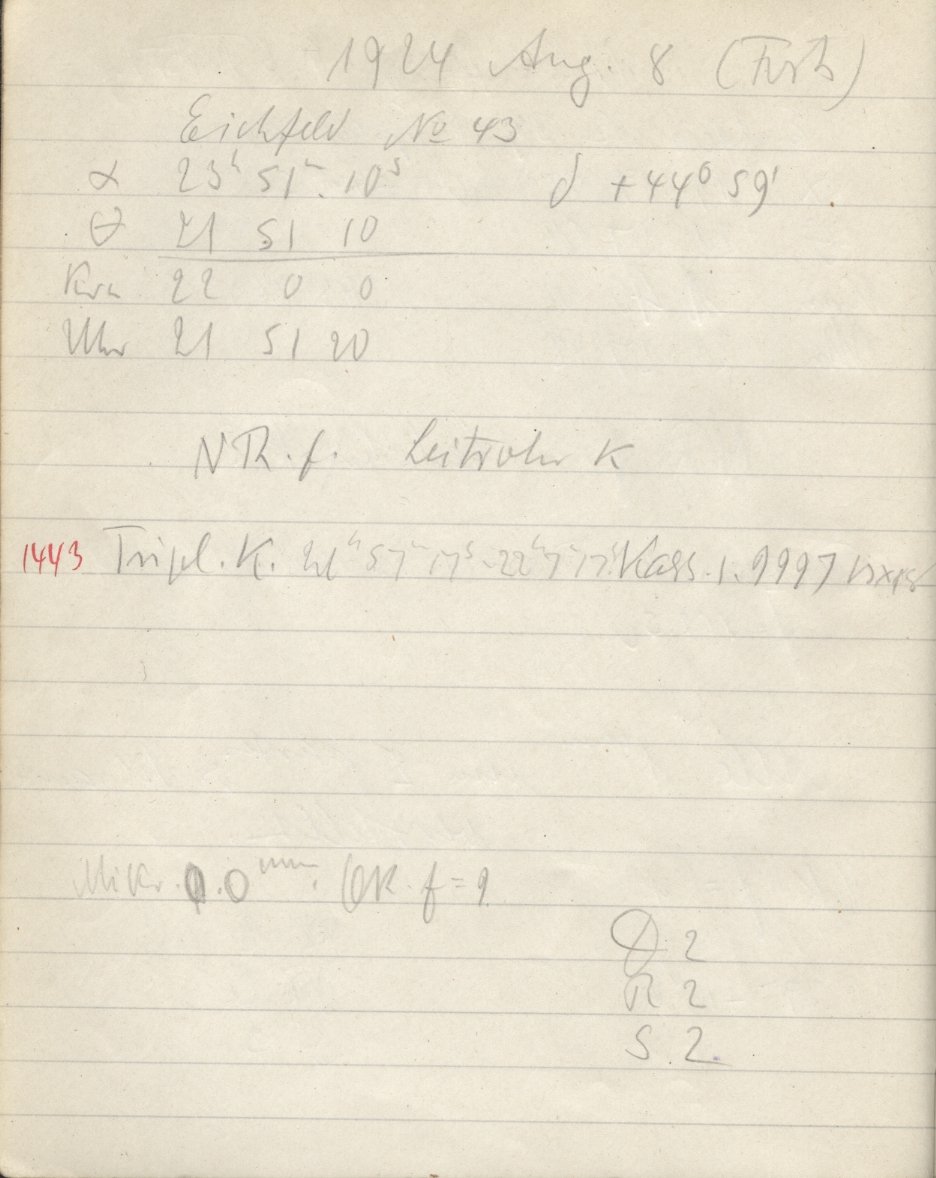 1924 Aug. 8 (Forts)
Eichfeld № 43
α 23ʰ 51ᵐ 10ˢ δ +44⁰ 59'
θ 21 51 10
Krn 22 0 0
Uhr 21 51 20
NR. f. Leitrohr K
1443 Tripl. K. 21ʰ 57ᵐ 17ˢ - 22ʰ 7ᵐ 17ˢ Kass. 1. 9997
Mikr. 0.0ᵐᵐ. OK. f = 9
D 2
R 2
S. 2.